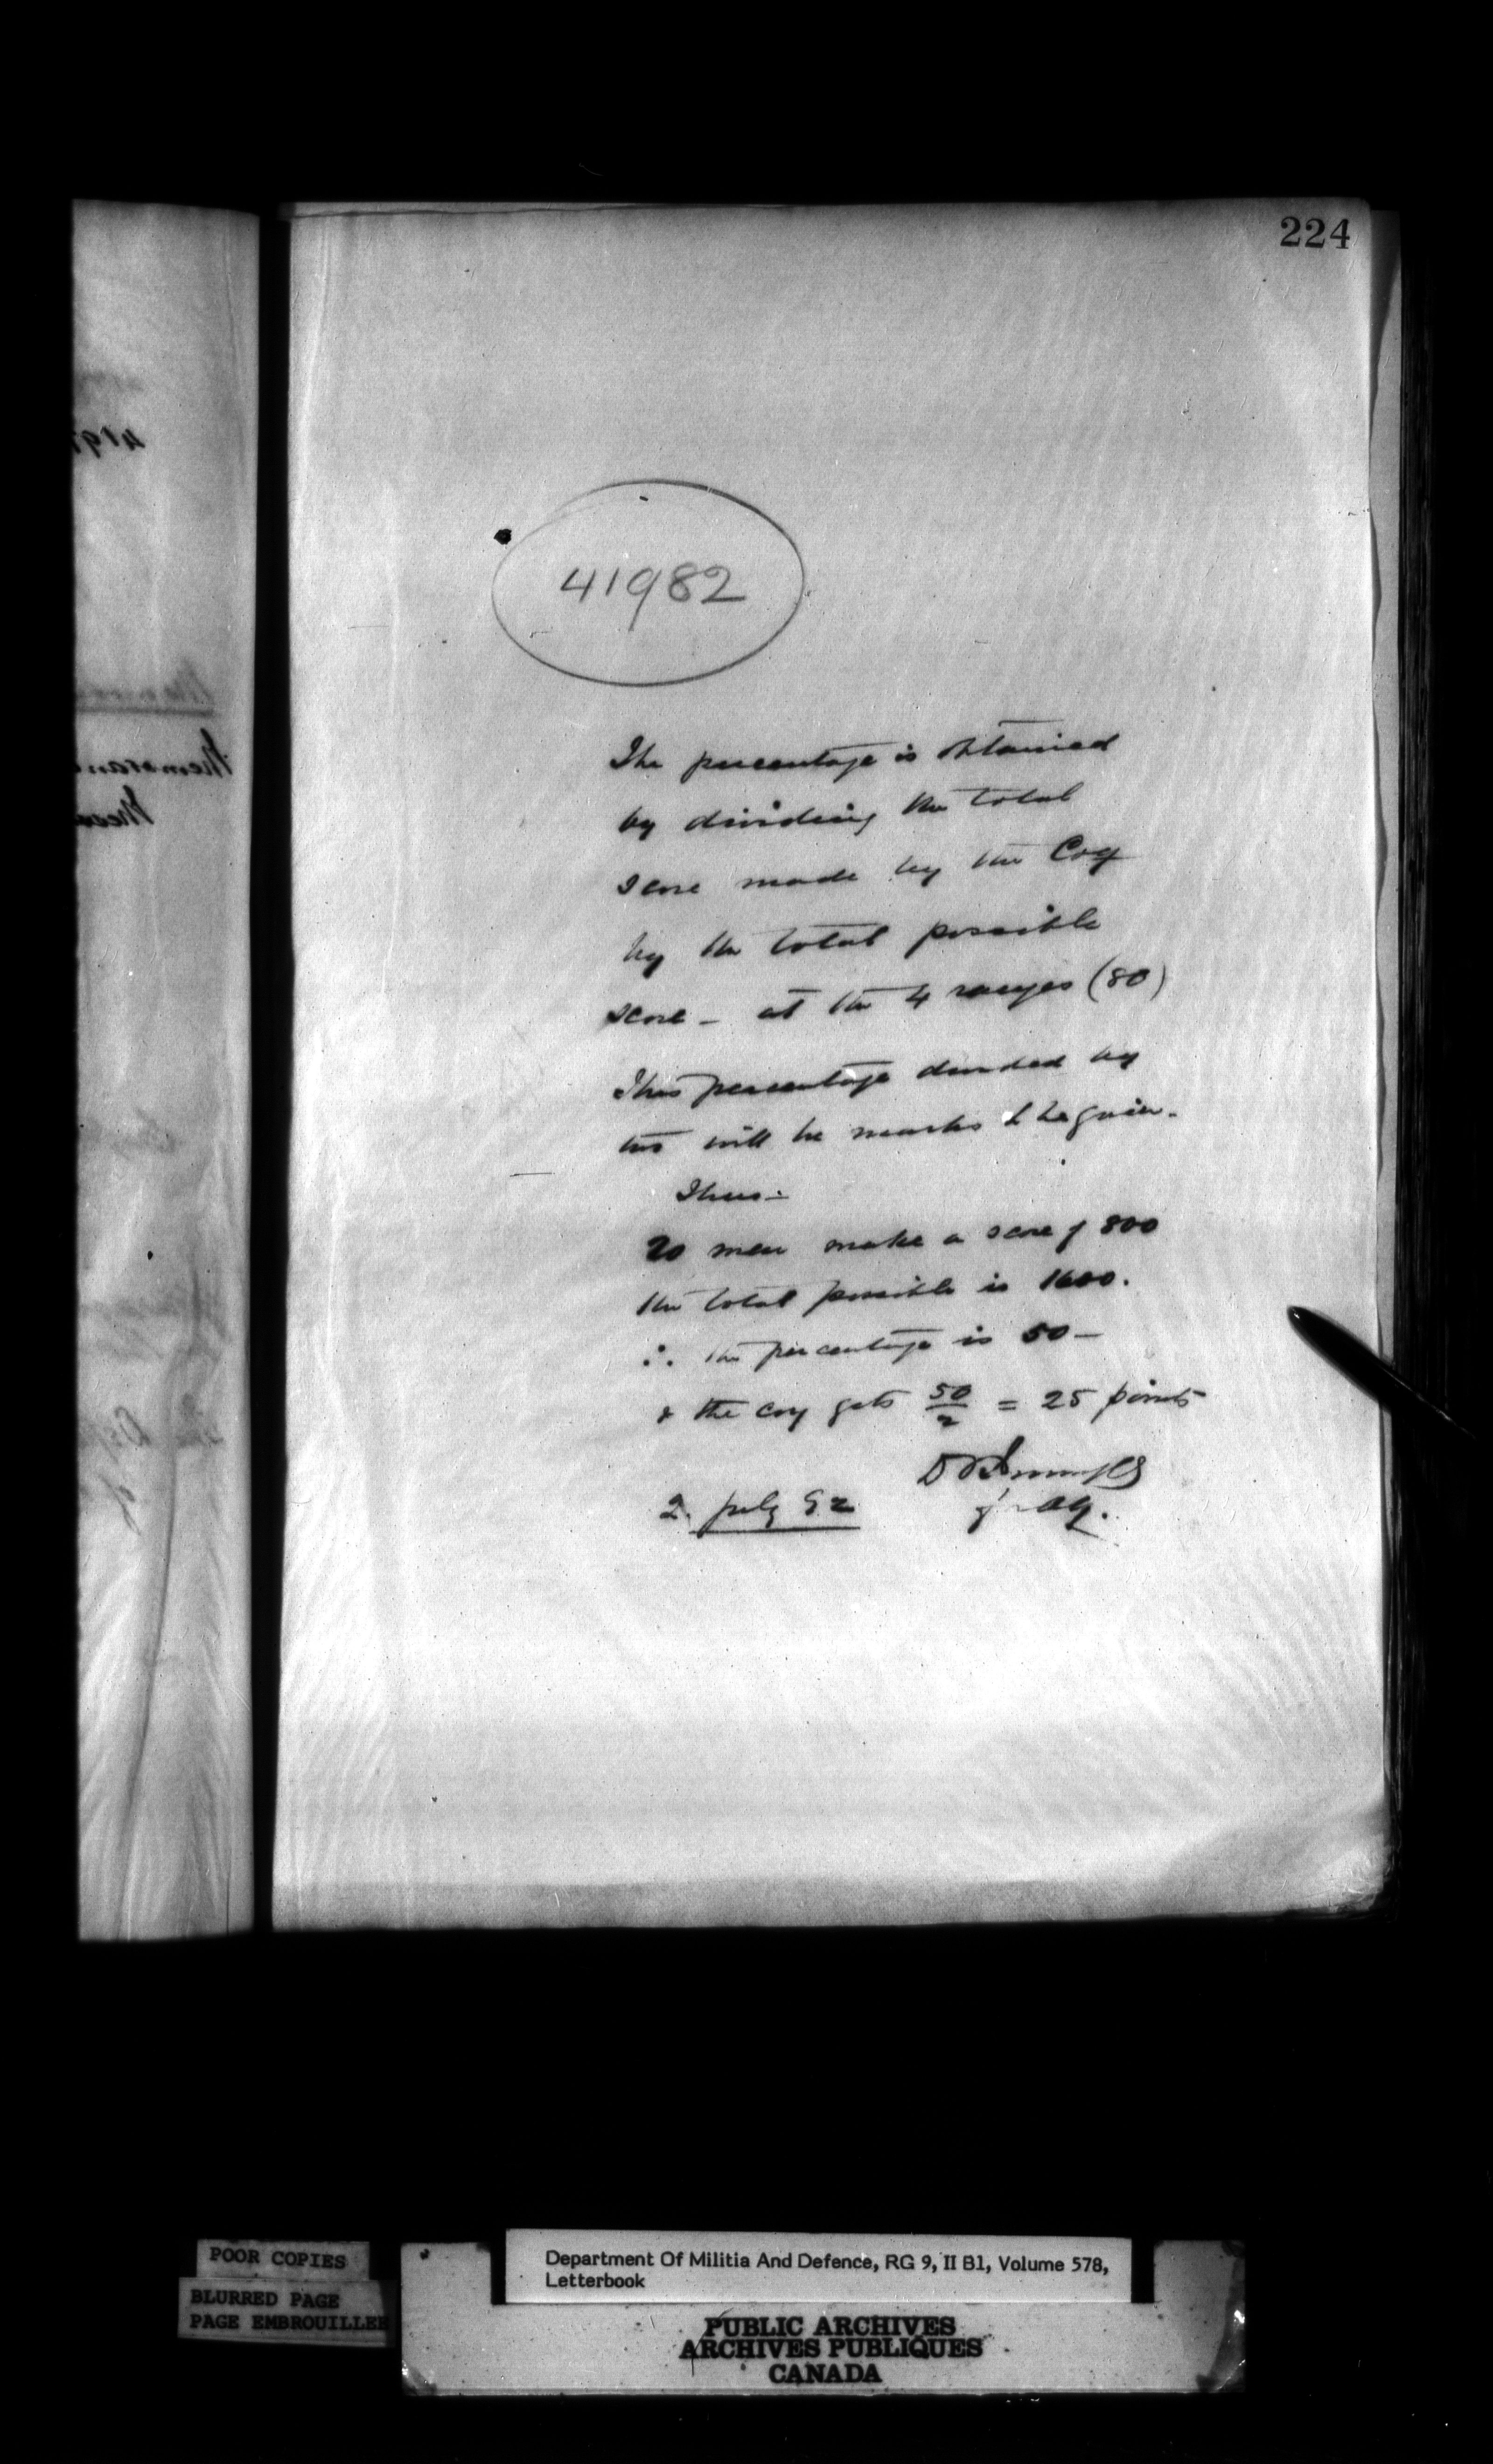 224
41982
The percentage is obtained
by dividing the total
score made by the Coy
by the total possible
score - at the 4 ranges (80)
This percentage divided by
two will be marks to be given.
Thus:-
20 men make a score of 800
the total possible is 1600.
∴ the percentage is 50-
& the coy gets 50/2 = 25 points
2. July 92
POOR COPIES
BLURRED PAGE
PAGE EMBROUILLEE
Department Of Militia And Defence, RG 9, II B1, Volume 578,
Letterbook
PUBLIC ARCHIVES
ARCHIVES PUBLIQUES
CANADA